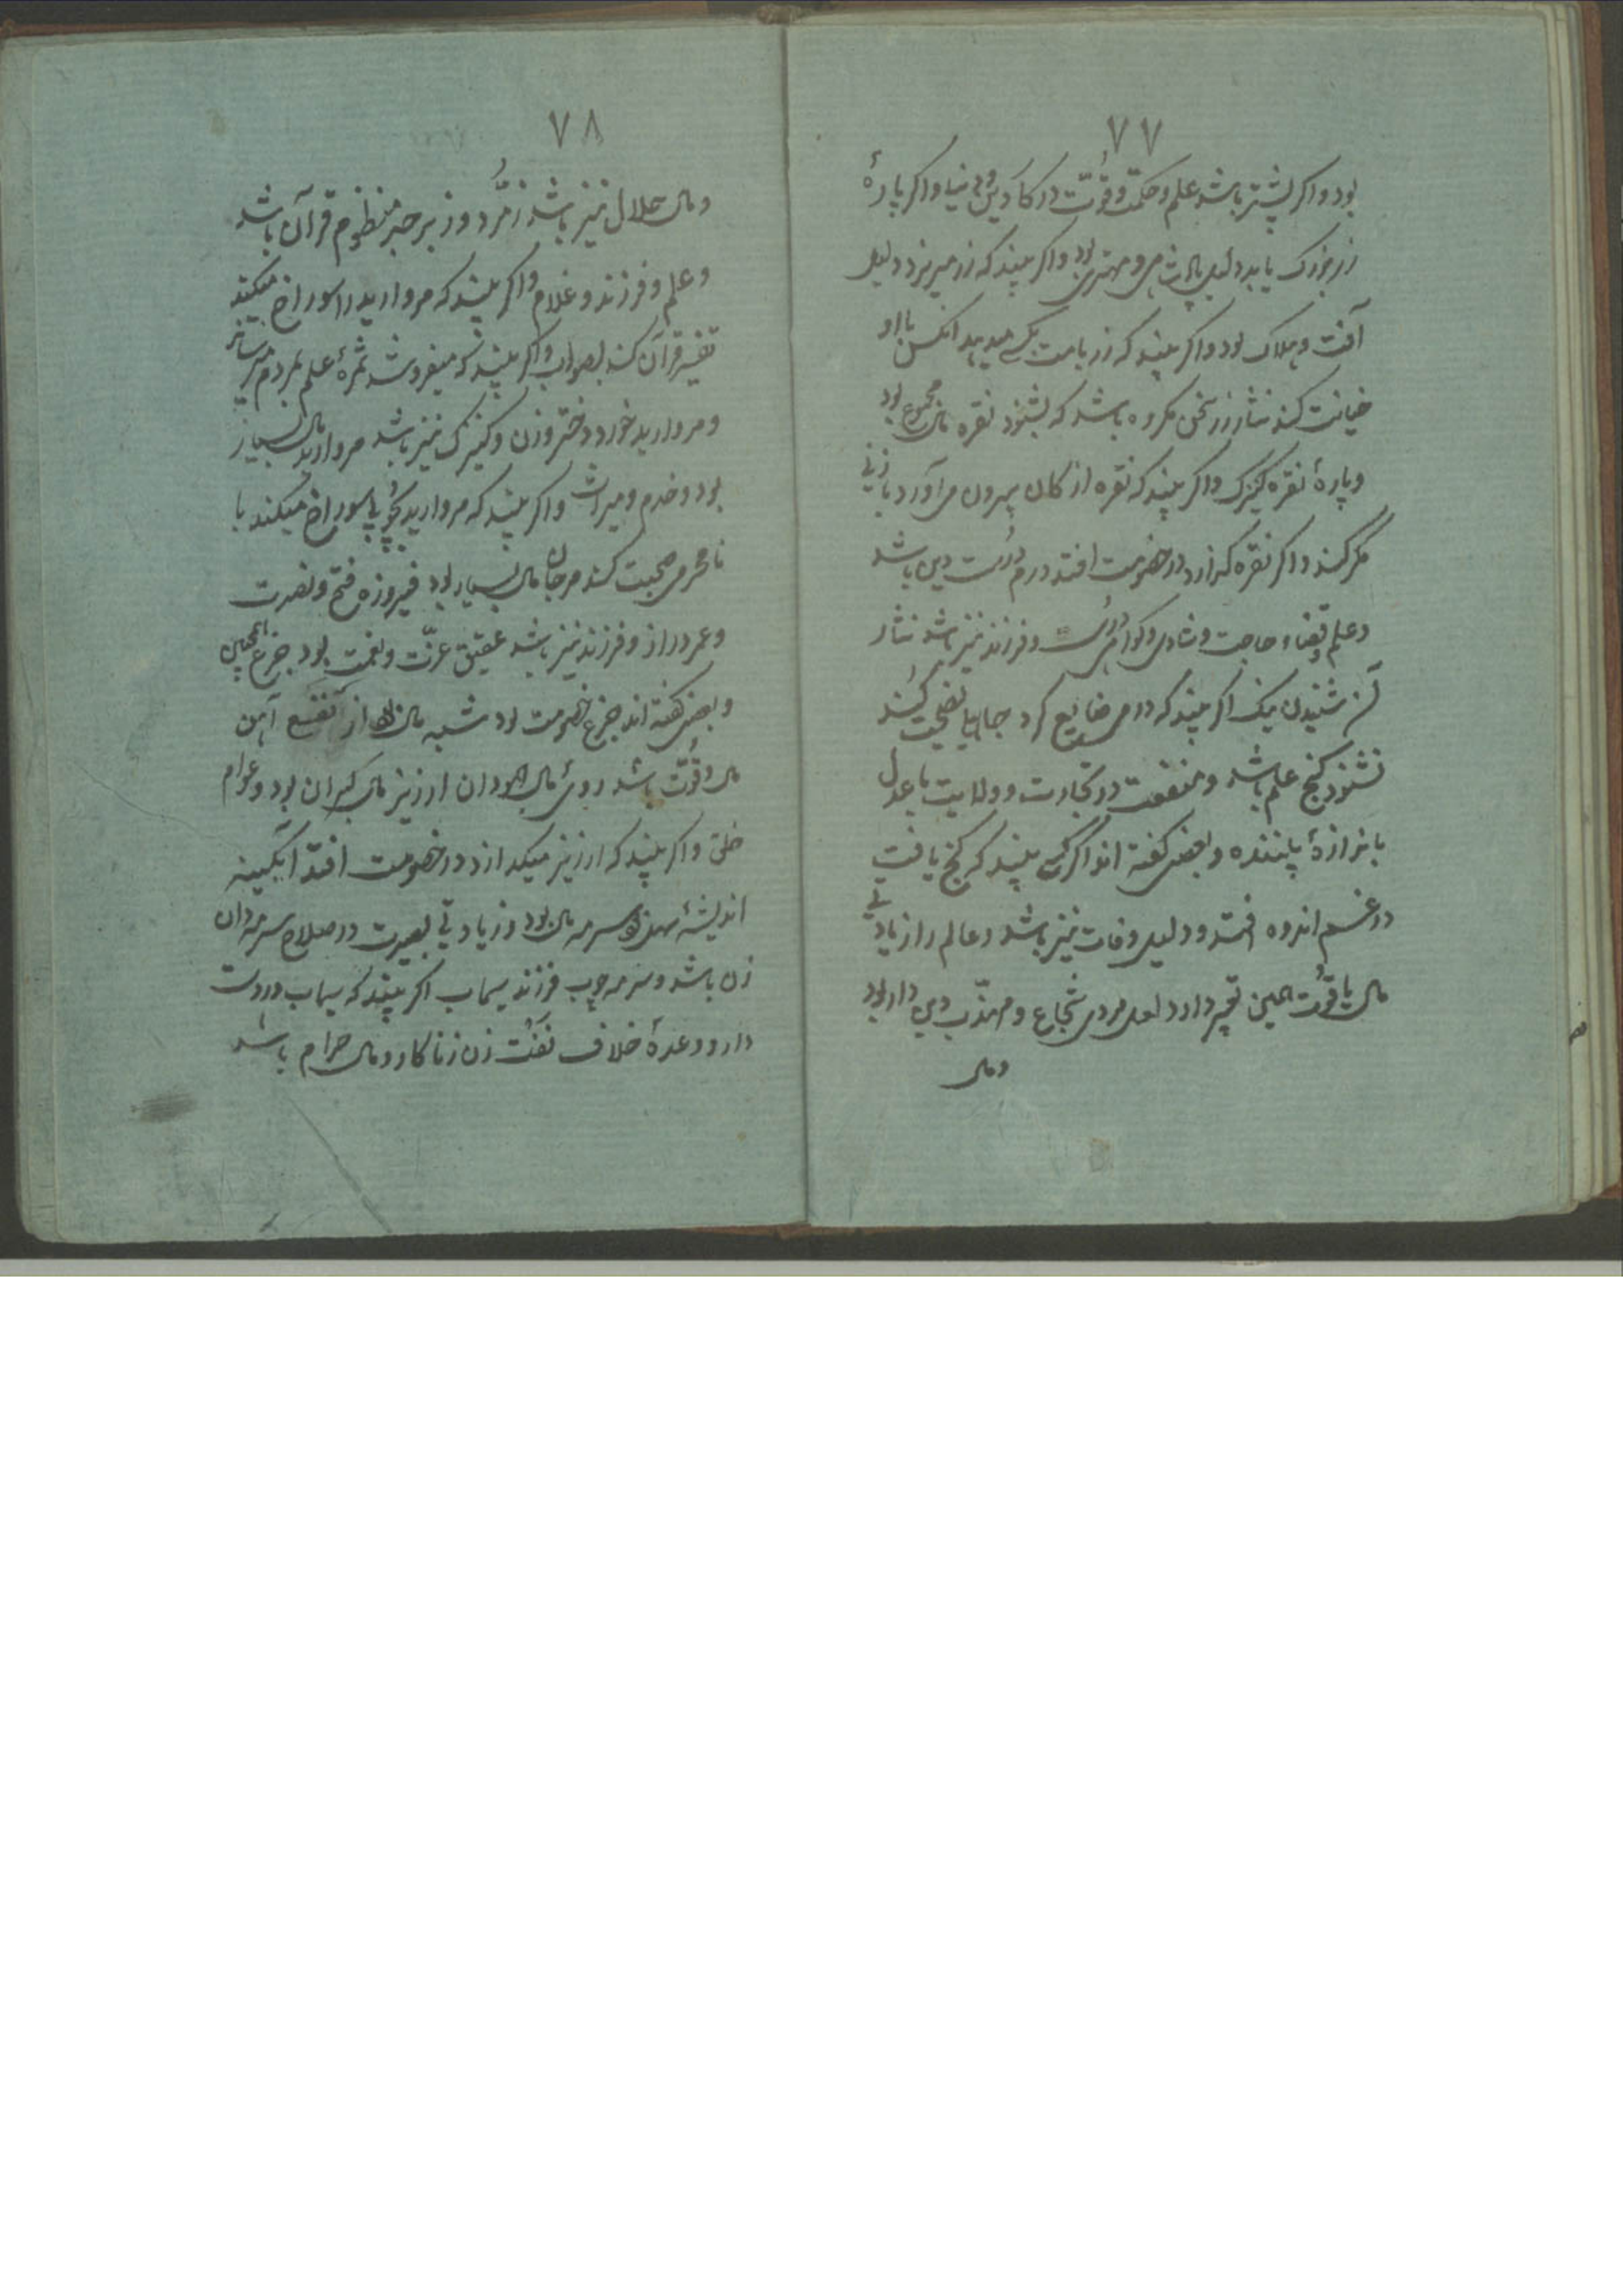 ۷۷
بود و اکر بیشتر باشد علم و حکمت و قوّت در کار دین و دنیا و اکر پارهٔ
زر بزرک یابد دلیل پادشاهی و مهتری بود و اکر بیند که زر میریزد دلیل
آفت و هلاک بود و اکر بیند که زر بامانت بکسی میدهد انکس با او
خیانت کند نثار زر سخن مکروه باشد که بشنود نقره مال مجموع بود
و پارهٔ نقره کنیزک و اکر بیند که نقره از کان بیرون می آورد با زنی
مکر کند و اکر نقره کدازد در خصومت افتد درم درست دین باشد
و علم و قضاء حاجت و شادی و کواهی راست و فرزند نیز باشد نثار
شنیدن نیک اکر بیند که درمی ضایع کرد جاهلی را نصیحت کند
نشنود کنج علم باشد و منفعت در تجارت و ولایت با عدل
باندازهٔ بیننده و بعضی کفته اند اکر کسی بیند که کنج یافت
در غم و اندوه افتد و دلیل وفات نیز باشد و عالم را زیادتی
مال یاقوت همین تعبیر دارد لعل مردی شجاع و مهذّب و دین دار بود
و مال
۷۸
و مال حلال نیز باشد زمُرّد و زبرجد منظوم قرآن باشد
و علم و فرزند و غلام و اکر بیند که مروارید را سوراخ میکند
تفسیر قرآن کند بصواب و اکر بیند که میفروشد ثمرهٔ علم بمردم میرساند
و مروارید خورد دختر و زن و کنیزک نیز باشد مروارید مال بسیار
بود و خدم و میراث و اکر بیند که مروارید بچوب سوراخ میکند با
نامحرمی صحبت کند مرجان مال بسیار بود فیروزه فتح و نصرت
و عمر دراز و فرزند نیز باشد عقیق عزّت و نعمت بود جزع همچنین
و بعضی کفته اند جزع خصومت بود شبه مال بود از آهن
مال و قوّت باشد روی مال جهودان ارزیز مال کبران بود و عوام
خلق و اکر بیند که ارزیز میکدازد در خصومت افتد آبکینه
اندیشهٔ سهل بود سرمه مال بود و زیادتی بصیرت در صلاح سرمه دان
زن باشد و سرمه چوب فرزند سیماب اکر بیند که سیماب دردست
دارد وعدهٔ خلاف نفت زن زناکار و مال حرام باشد